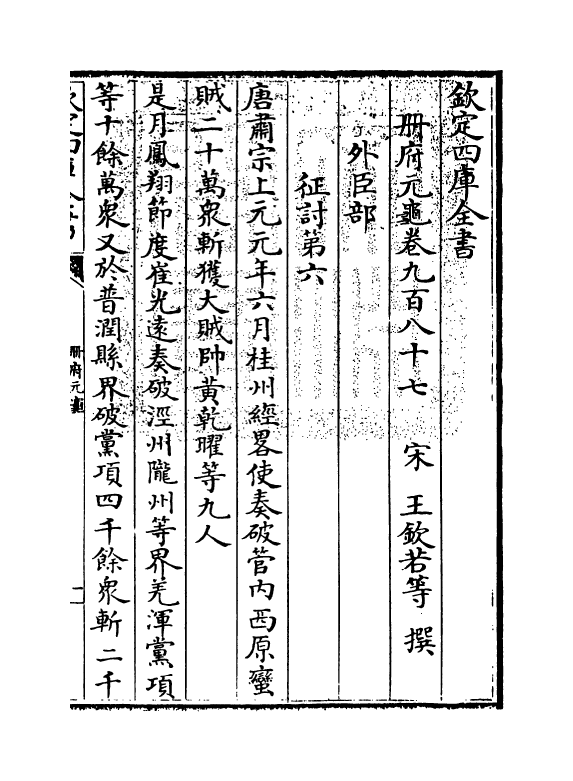 欽定四庫全書
冊府元龜卷九百八十七　宋　王欽若等　撰
外臣部
征討第六
唐肅宗上元元年六月桂州經畧使奏破管內西原蠻
賊二十萬衆斬獲大賊帥黃乾曜等九人
是月鳳翔節度崔光遠奏破涇州隴州等界羌渾黨項
等十餘萬衆又於普潤縣界破黨項四千餘衆斬二千
冊府元龜